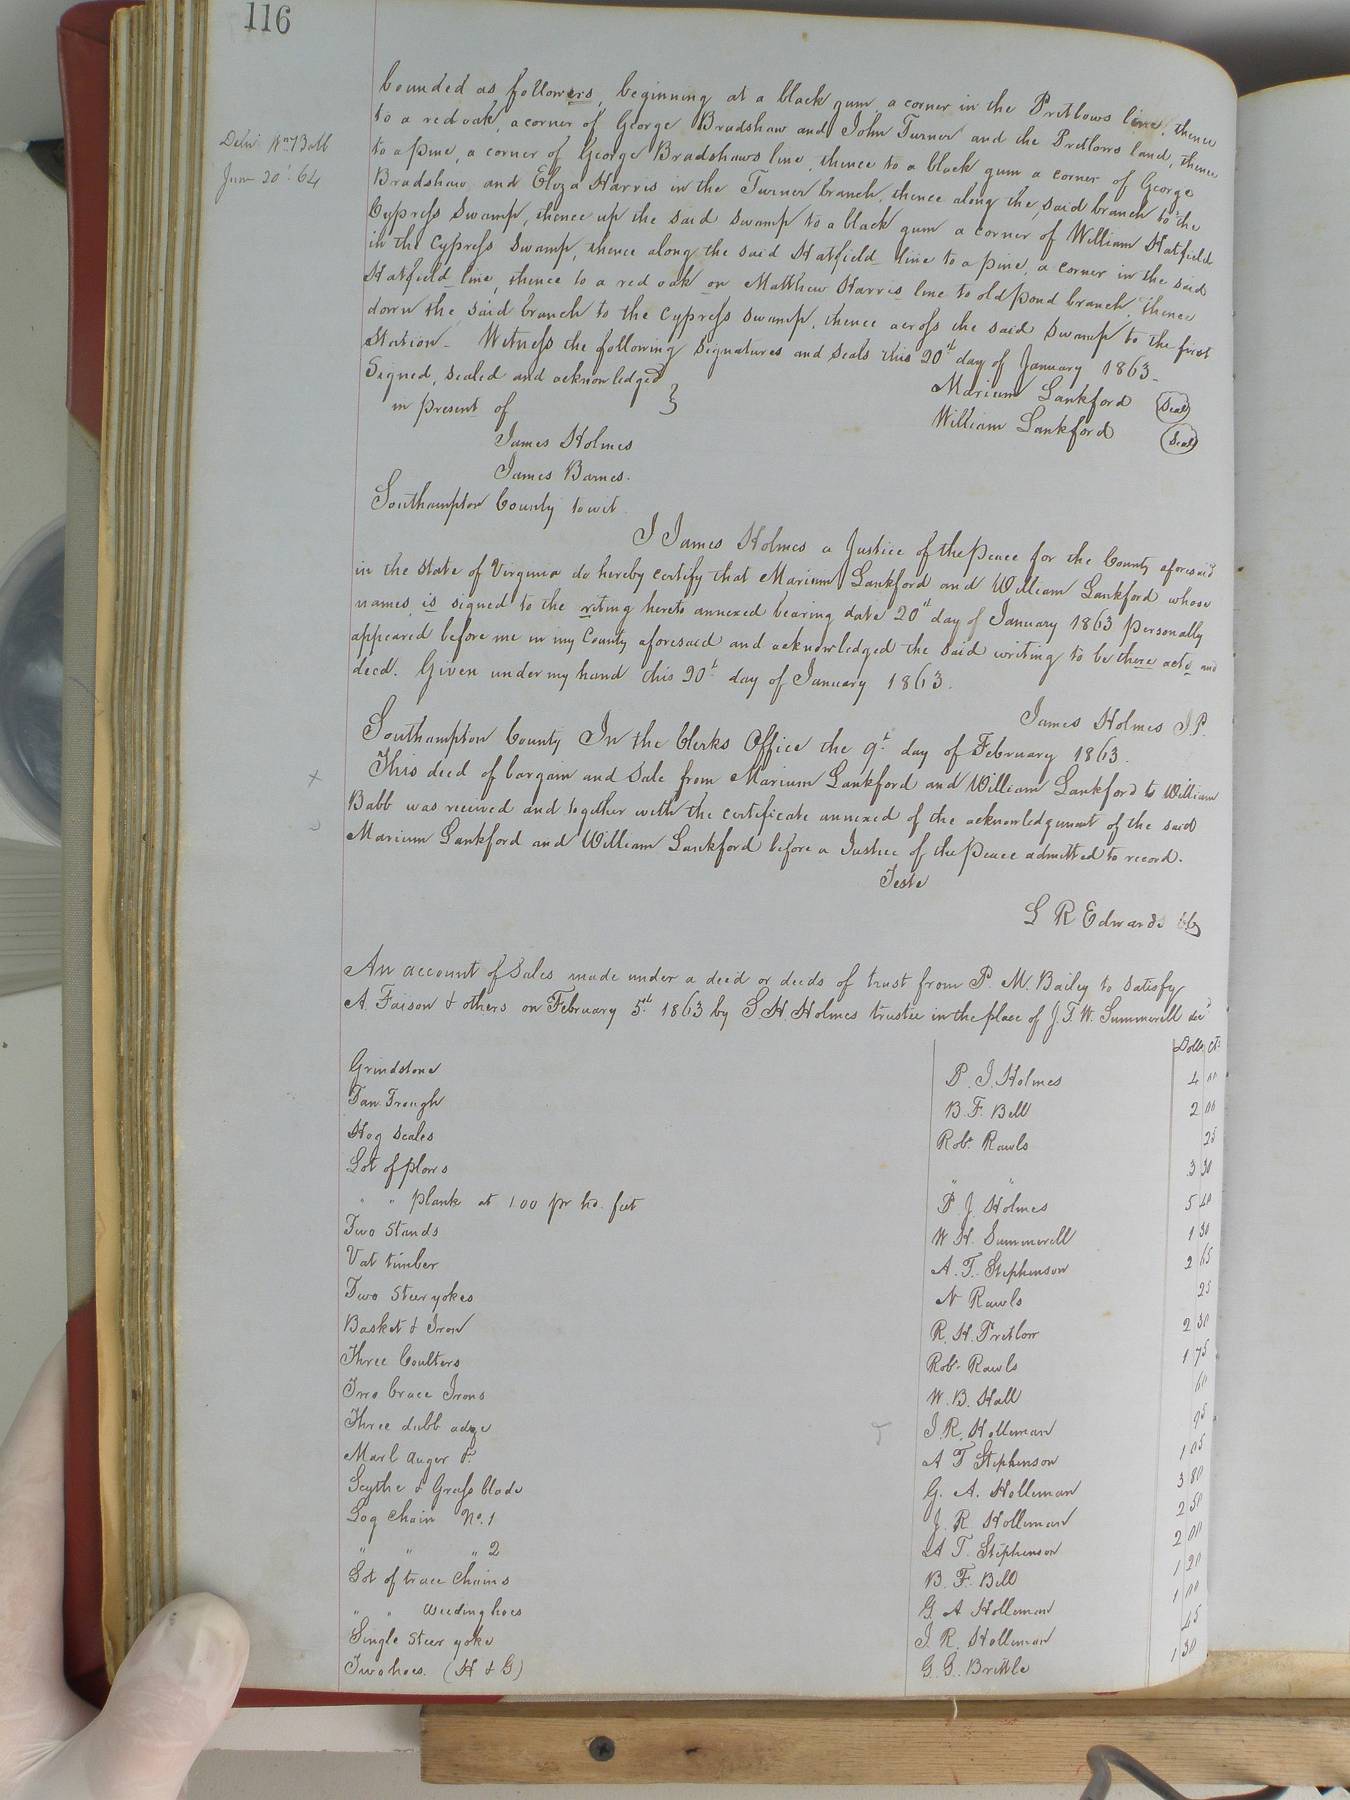 116
Deliv Wm Babb
June 20th 64
bounded as followers, beginning at a black gum, a corner in the Pretlows line, thence
to a red oak, a corner of George Bradshaw and John Turner and the Pretlows land, thence
to a pine, a corner of George Bradshaws line, thence to a black gum a corner of George
Bradshaw and Eliza Harris in the Turner branch, thence along the said branch to the
Cypress Swamp, thence up the said swamp to a black gum a corner of William Hatfield
in the Cypress Swamp, thence along the said Hatfield line to a pine, a corner in the said
Hatfield line, thence to a red oak on Matthew Harris line to old pond branch, thence
down the said branch to the Cypress Swamp, thence across the said Swamp to the first
Station. Witness the following signatures and seals this 20th day of January 1863.
Signed, sealed and acknowledged }
in present of
Marium Lankford (Seal)
William Lankford (Seal)
James Holmes
James Barnes.
Southampton County to wit
I James Holmes a Justice of the peace for the County aforesaid
in the State of Virginia do hereby certify that Marium Lankford and William Lankford whose
names is signed to the riting hereto annexed bearing date 20th day of January 1863 personally
appeared before me in my County aforesaid and acknowledged the said writing to be there acts and
deed. Given under my hand this 20th day of January 1863.
James Holmes J.P.
Southampton County In the Clerks Office the 9th day of February 1863.
x This deed of bargain and sale from Marium Lankford and William Lankford to William
Babb was received and together with the certificate annexed of the acknowledgment of the said
Marium Lankford and William Lankford before a Justice of the Peace admitted to record.
Teste
L R Edwards Clk
An account of Sales made under a deed or deeds of trust from P. M. Bailey to satisfy
A. Faison & others on February 5th 1863 by S. H. Holmes trustee in the place of J. T. W. Summerell decd
Dolls Cts
Grindstone P. J. Holmes 4 00
Tan Trough B. F. Bell 2 00
Hog Scales Robt Rawls 25
Lot of plows " " 3 30
" " plank at 1.00 pr hd. feet P. J. Holmes 5 40
Two Stands W H. Summerell 1 30
Vat timber A. T. Stephenson 2 65
Two Steer yokes N Rawls 25
Basket & Iron R. H. Pretlow 2 30
Three Coulters Robt Rawls 1 75
Two brace Irons W. B. Hall 60
Three dubb adze J. R. Holleman 95
Marl auger &. A T Stephenson 1 05
Scythe & Grass blade G. A. Holleman 3 80
Log Chain No. 1 J. R. Holleman 2 50
" " " 2 A T. Stephenson 2 00
Lot of trace Chains B. F. Bell 1 20
" " weeding hoes G A Holleman 1 00
Single Steer yoke J. R. Holleman 45
Two hoes. (H & G) G. G. Brittle 1 30